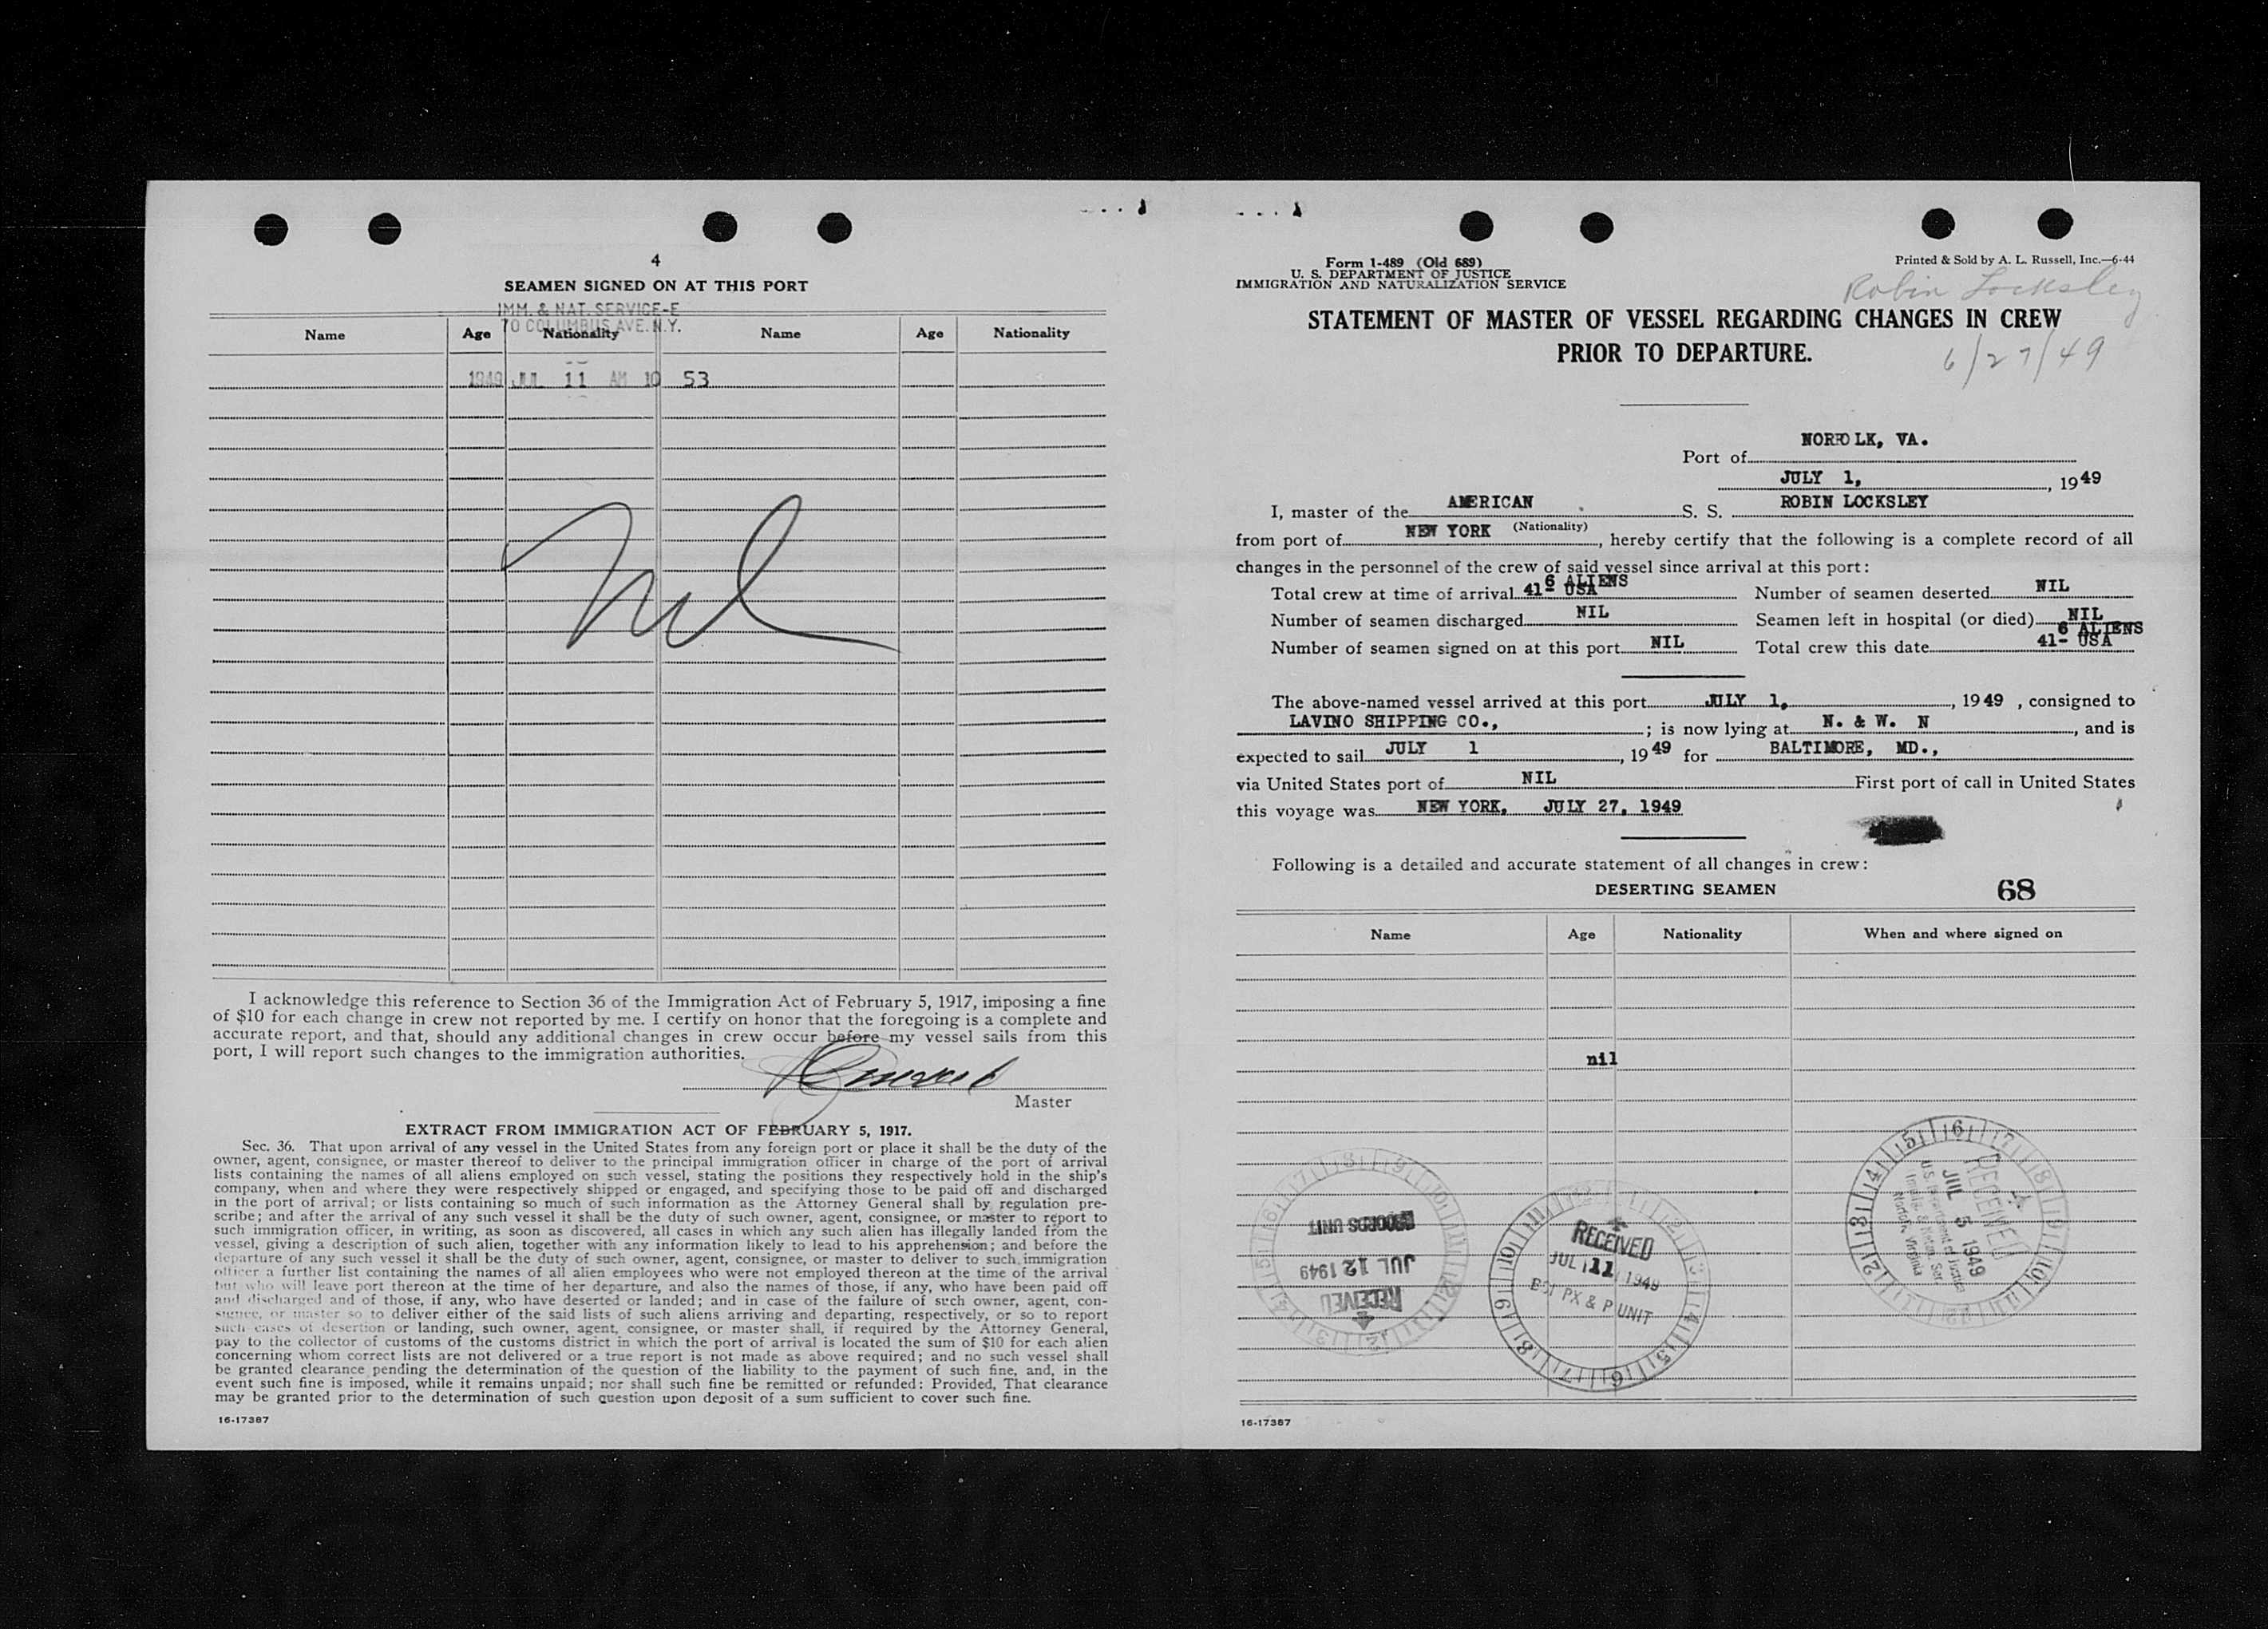 4
SEAMEN SIGNED ON AT THIS PORT
IMM. & NAT. SERVICE-E
70 COLUMBUS AVE. N.Y.
Name Age Nationality Name Age Nationality
1949 JUL 11 AM 10 53
Nil
I acknowledge this reference to Section 36 of the Immigration Act of February 5, 1917, imposing a fine
of $10 for each change in crew not reported by me. I certify on honor that the foregoing is a complete and
accurate report, and that, should any additional changes in crew occur before my vessel sails from this
port, I will report such changes to the immigration authorities.
Master
EXTRACT FROM IMMIGRATION ACT OF FEBRUARY 5, 1917.
Sec. 36. That upon arrival of any vessel in the United States from any foreign port or place it shall be the duty of the
owner, agent, consignee, or master thereof to deliver to the principal immigration officer in charge of the port of arrival
lists containing the names of all aliens employed on such vessel, stating the positions they respectively hold in the ship's
company, when and where they were respectively shipped or engaged, and specifying those to be paid off and discharged
in the port of arrival; or lists containing so much of such information as the Attorney General shall by regulation pre-
scribe; and after the arrival of any such vessel it shall be the duty of such owner, agent, consignee, or master to report to
such immigration officer, in writing, as soon as discovered, all cases in which any such alien has illegally landed from the
vessel, giving a description of such alien, together with any information likely to lead to his apprehension; and before the
departure of any such vessel it shall be the duty of such owner, agent, consignee, or master to deliver to such immigration
officer a further list containing the names of all alien employees who were not employed thereon at the time of the arrival
but who will leave port thereon at the time of her departure, and also the names of those, if any, who have been paid off
and discharged and of those, if any, who have deserted or landed; and in case of the failure of such owner, agent, con-
signee, or master so to deliver either of the said lists of such aliens arriving and departing, respectively, or so to report
such cases of desertion or landing, such owner, agent, consignee, or master shall, if required by the Attorney General,
pay to the collector of customs of the customs district in which the port of arrival is located the sum of $10 for each alien
concerning whom correct lists are not delivered or a true report is not made as above required; and no such vessel shall
be granted clearance pending the determination of the question of the liability to the payment of such fine, and, in the
event such fine is imposed, while it remains unpaid; nor shall such fine be remitted or refunded: Provided, That clearance
may be granted prior to the determination of such question upon deposit of a sum sufficient to cover such fine.
16-17387
Form 1-489 (Old 689)
U. S. DEPARTMENT OF JUSTICE
IMMIGRATION AND NATURALIZATION SERVICE
Printed & Sold by A. L. Russell, Inc.—6-44
Robin Locksley
STATEMENT OF MASTER OF VESSEL REGARDING CHANGES IN CREW
PRIOR TO DEPARTURE.
6/27/49
Port of NORFOLK, VA.
JULY 1, 1949
I, master of the AMERICAN S. S. ROBIN LOCKSLEY
(Nationality)
from port of NEW YORK, hereby certify that the following is a complete record of all
changes in the personnel of the crew of said vessel since arrival at this port:
Total crew at time of arrival 6 ALIENS 41- USA Number of seamen deserted NIL
Number of seamen discharged NIL Seamen left in hospital (or died) NIL
Number of seamen signed on at this port NIL Total crew this date 6 ALIENS 41- USA
The above-named vessel arrived at this port JULY 1, 1949, consigned to
LAVINO SHIPPING CO., ; is now lying at N. & W. N, and is
expected to sail JULY 1, 1949 for BALTIMORE, MD.,
via United States port of NIL First port of call in United States
this voyage was NEW YORK, JULY 27, 1949
Following is a detailed and accurate statement of all changes in crew:
DESERTING SEAMEN 68
Name Age Nationality When and where signed on
nil
RECORDS UNIT
JUL 12 1949
RECEIVED
RECEIVED
JUL 11 1949
PX & P UNIT
RECEIVED
JUL 5 1949
U.S. Department of Justice
Immig. & Natzn. Ser.
Norfolk, Virginia
16-17387